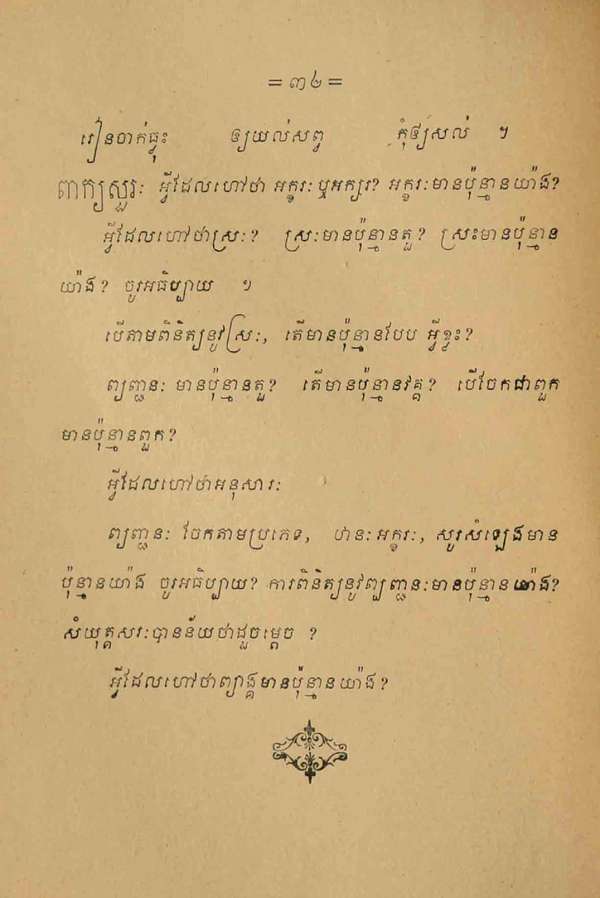 = ៣៤ =
រៀនចាក់ធ្លុះ ឲ្យយល់សព្វ កុំឲ្យសល់ ។
ពាក្យសួរៈ អ្វីដែលហៅថា អក្ខរៈ ឬអក្សរ? អក្ខរៈមានប៉ុន្មានយ៉ាង?
អ្វីដែលហៅថាស្រៈ? ស្រៈមានប៉ុន្មានតួ? ស្រះមានប៉ុន្មាន
យ៉ាង? ចូរអធិប្បាយ ។
បើតាមពិនិត្យនូវស្រៈ, តើមានប៉ុន្មានបែប អ្វីខ្លះ?
ព្យញ្ជនៈ មានប៉ុន្មានតួ? តើមានប៉ុន្មានវគ្គ? បើចែកជាពួក
មានប៉ុន្មានពួក?
អ្វីដែលហៅថាអនុសារៈ
ព្យញ្ជនៈ ចែកតាមប្រភេទ, ឋានៈអក្ខរៈ, សូរសំឡេងមាន
ប៉ុន្មានយ៉ាង ចូរអធិប្បាយ? ការពិនិត្យនូវព្យញ្ជនៈមានប៉ុន្មានយ៉ាង?
សំយុត្តសរៈបានន័យថាដូចម្ដេច ?
អ្វីដែលហៅថាព្យាង្គមានប៉ុន្មានយ៉ាង?